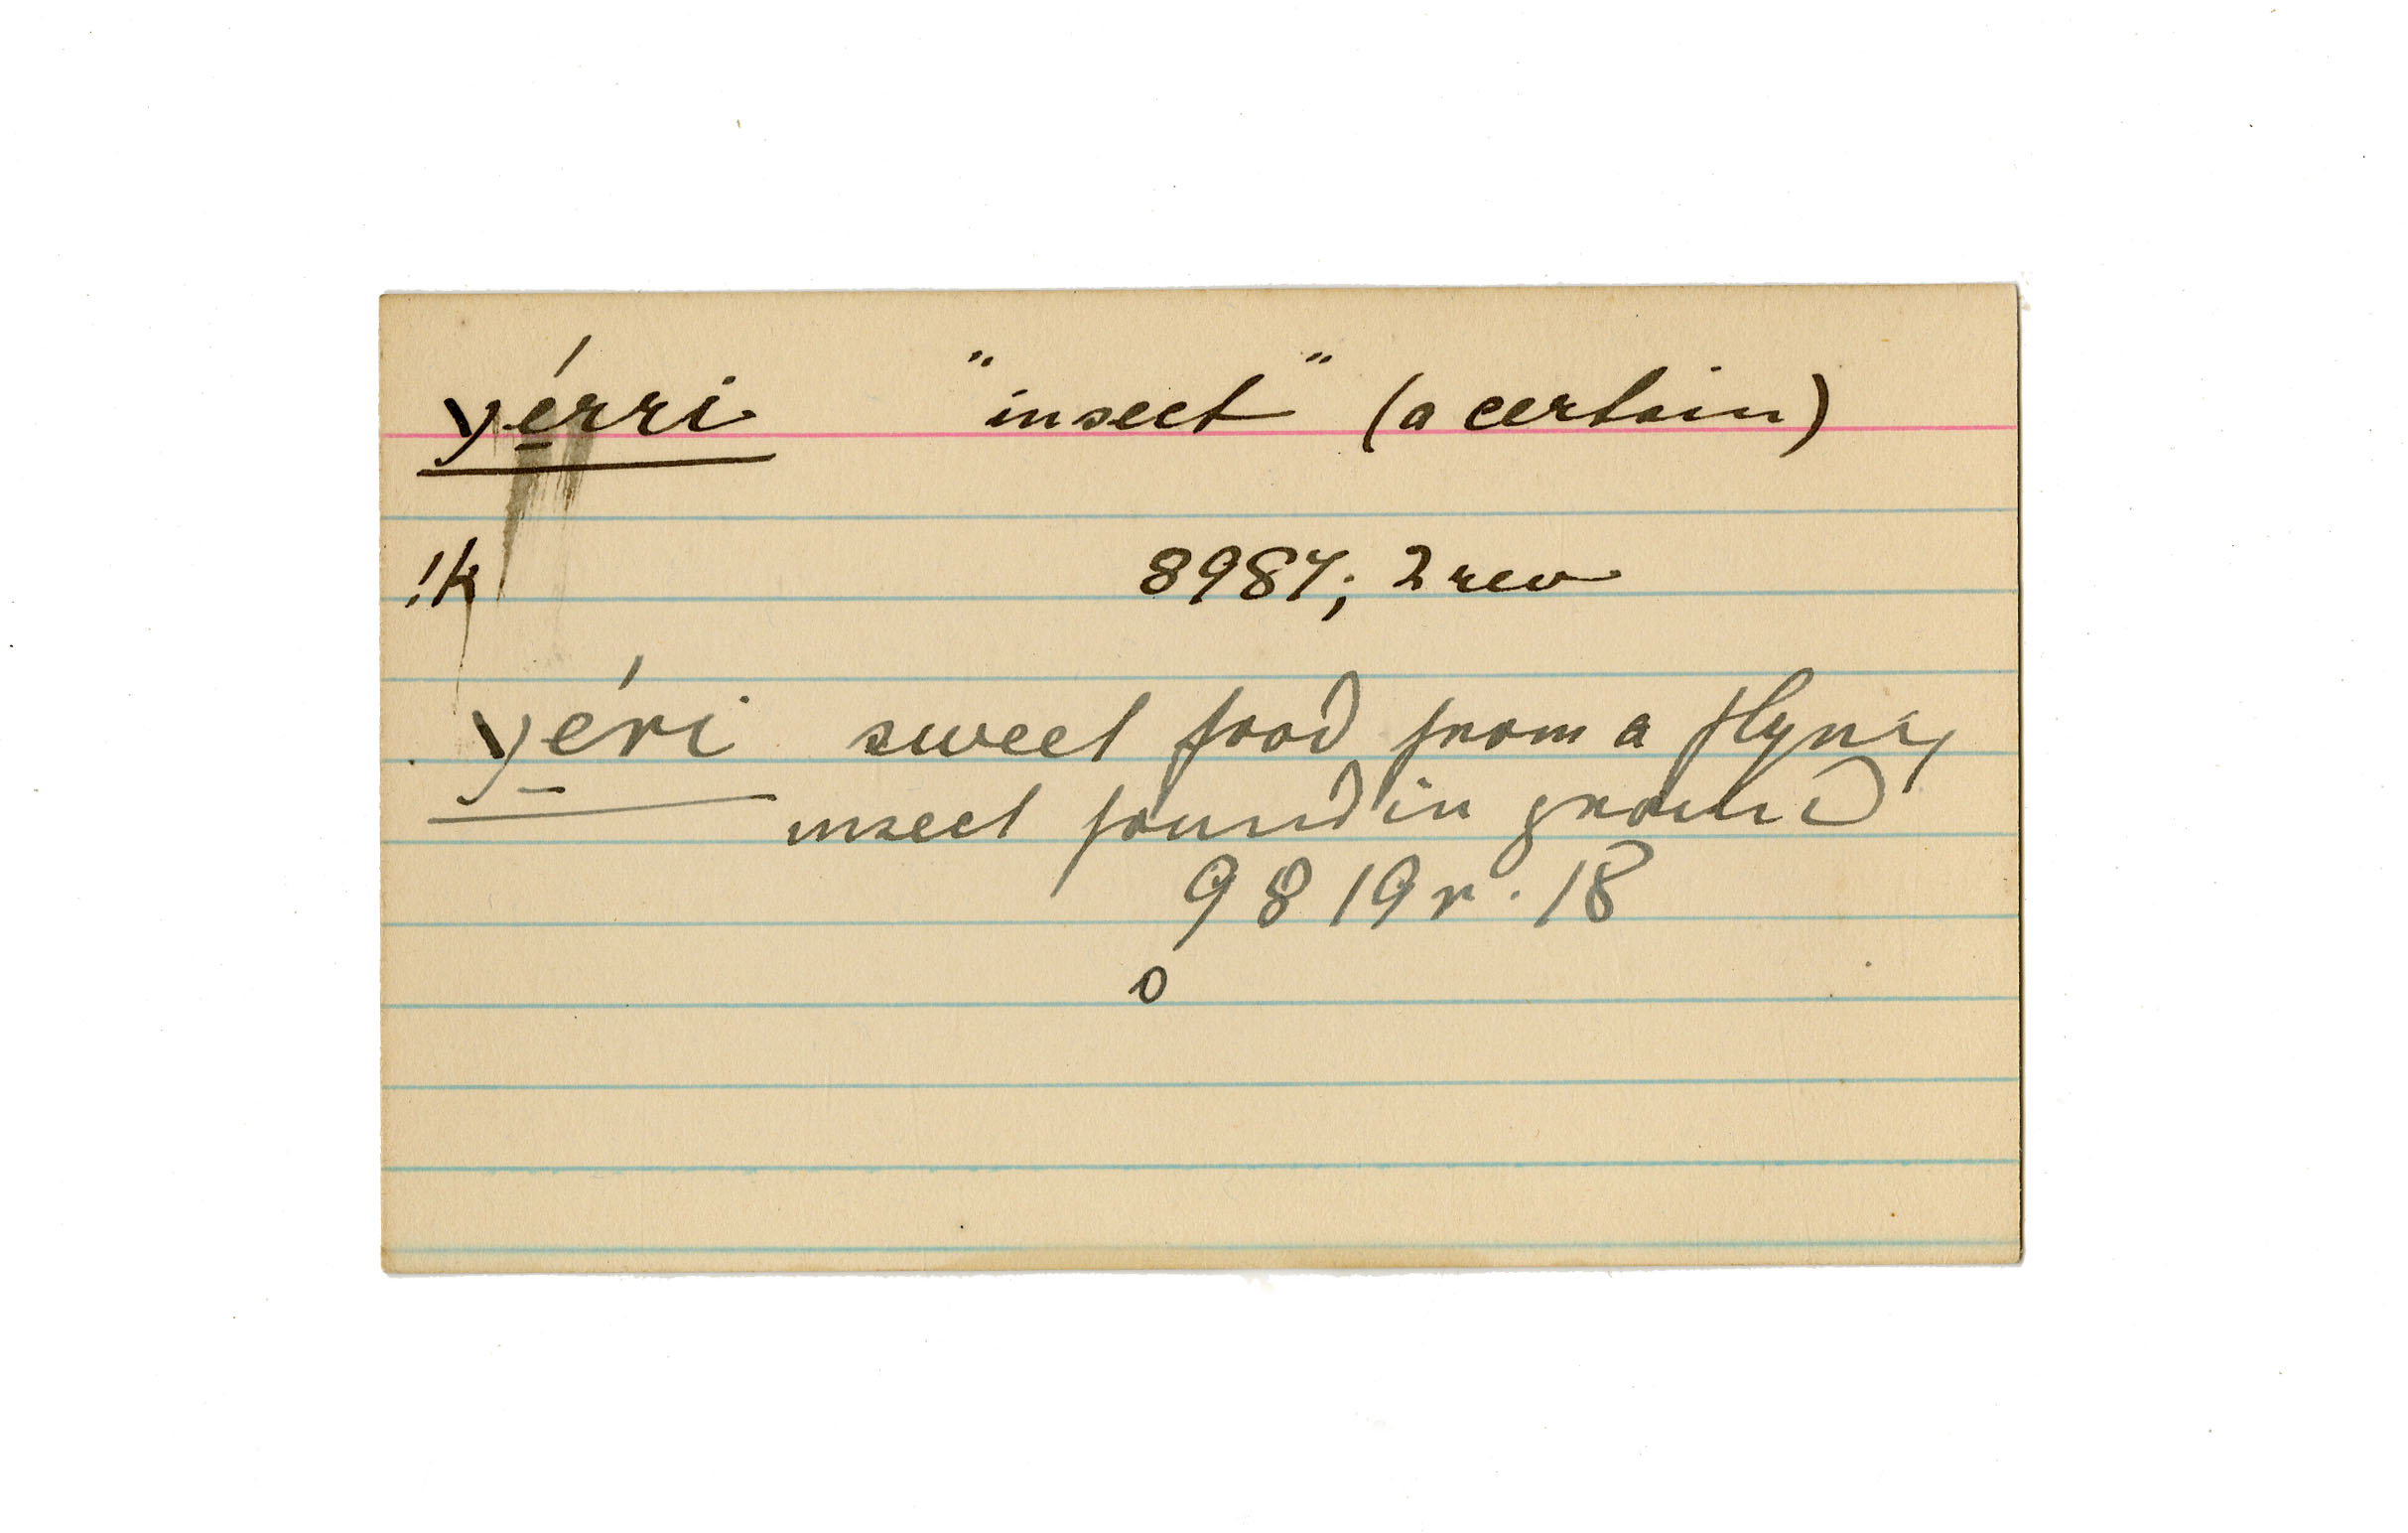 yé̱rri "insect" (a certain)
!k 8987; 2 rev
yé̱ri sweet food from a flying
insect found in ground
9819 r. 18
0